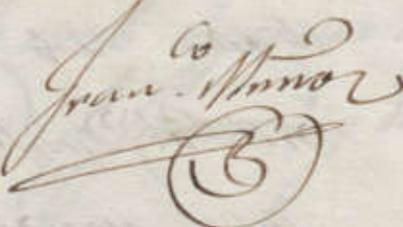 Fran.co Muñoz